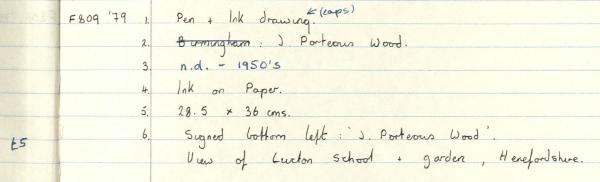 F809 '79 1. Pen + Ink drawing. ← (caps)
2. Birmingham : J. Porteous Wood.
3. n.d. - 1950's
4. Ink on Paper.
5. 28.5 × 36 cms.
6. Signed bottom left : 'J. Porteous Wood'.
£5 View of Lucton School + garden, Herefordshire.